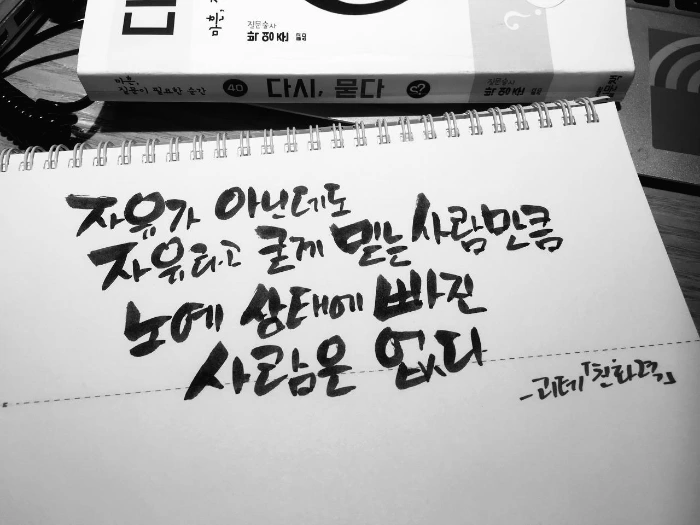 질문술사
박영준
마음,
질문이 필요한 순간 40 다시, 묻다 질문술사 박영준
자유가 아닌데도
자유라고 굳게 믿는 사람만큼
노예 상태에 빠진
사람은 없다
-괴테「친화력」